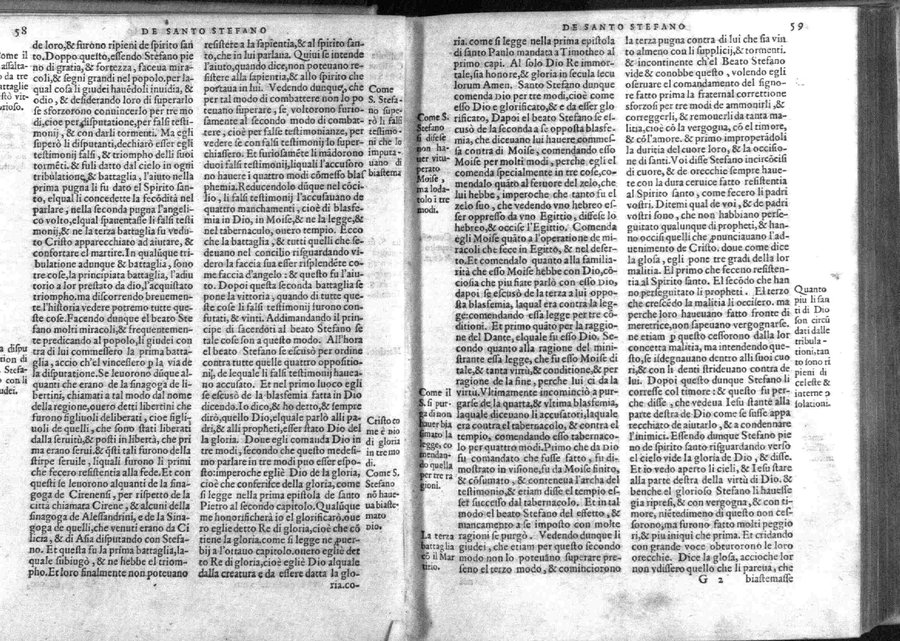 58
DE SANTO STEFANO
de loro,& furono ripieni de spirito san
to. Doppo questo, essendo Stefano pie
no di gratia, & fortezza, faceua mira
coli,& segni grandi nel popolo.per la
qual cosa li giudei hauēdoli inuidia, &
odio , & desiderando loro di superarlo
se sforzerono conuincerlo per tre mo
di,cioe per disputatione,per falsi testi
monij , & con darli tormenti. Ma egli
superò li disputanti,dechiarò esser egli
testimonij falsi , & triompho delli suoi
tormēti. & fuli datto dal cielo in ogni
tribulatione & battaglia , l'aiuto nella
prima pugna li fu dato el Spirito san-
to, elqual li concedette la fecōdità nel
parlare , nella seconda pugna l'angeli-
co volto,elqual spauentasse li falsi testi
monij,& ne la terza battaglia fu vedu-
to Cristo apparecchiato ad aiutare, &
confortare el martire. In qualūque tri-
bulatione adunque & battaglia , sono
tre cose, la principiata battaglia, l'adiu
torio a lor prestato da dio,l'acquistato
triompho.ma discorrendo breuemen-
te l'historia vedere potremo tutte que
ste cose.Facendo dunque el beato Ste
fano molti miracoli,& frequentemen-
te predicando al popolo,li giudei con
tra di lui commessero la prima batta-
glia , accio ch'el vincessero p la via de
la disputatione. Se leuorono dūque al-
quanti che erano de la sinagoga de li-
bertini, chiamati a tal modo dal nome
della regione,ouero detti libertini che
furono figliuoli deliberati , cioe figli-
uoli de quelli , che sono stati liberati
dalla seruitù,& posti in libertà, che pri
ma erano serui.& q̄sti tali furono della
stirpe seruile, liquali furono li primi
che fecero resistentia alla fede.Et con
questi se leuorono alquanti de la sina-
goga de Cirenensi , per rispetto de la
città chiamata Cirene , & alcuni della
sinagoga de Alessandrini, e de la Sina-
goga de quelli,che venuti erano da Ci
licia , & di Asia disputando con Stefa-
no. Et questa fu la prima battaglia,la-
quale subiugò , & ne hebbe el triom-
pho.Et loro finalmente non poteuano
resistere a la sapientia,& al spirito san-
to,che in lui parlaua. Quiui se intende
l'aiuto,quando dice,non poteuano resi-
stere alla sapientia, & allo spirito che
portaua in lui. Vedendo dunque, che
per tal modo di combattere non lo po
teuano superare , se voltorono furiosa-
mente al secondo modo di combat-
tere, cioe per false testimonianze, per
vedere se con falsi testimonij lo super-
chiauano. Et furiosamēte li mādorono
duoi falsi testimonij,liquali l'accusaro
no hauere i quattro modi cōmesso bias
phemia.Reducendolo dūque nel cōci-
lio , li falsi testimonij l'accusauano de
quattro manchamenti, cioè di blasfe-
mia in Dio, in Moise,& ne la legge,&
nel tabernaculo, ouero tempio. Ecco
che la battaglia , & tutti quelli che se-
deuano nel concilio risguardando vi-
dero la faccia sua esser risplendēte co-
me faccia d'angelo : & questo fu l'aiu-
to. Dopoi questa seconda battaglia se
pone la vittoria , quando di tutte que
ste cose li falsi testimonij furono con-
futati, & vinti. Addimandando il prin-
cipe di sacerdoti al beato Stefano se
tale cose son a questo modo. All'hora
el beato Stefano se escusò per ordine
contra tutte quelle quattro oppositio
ni, de lequale li falsi testimonij hauea-
no accusato. Et nel primo luoco egli
se escusò de la blasfemia fatta in Dio
dicendo.Io dico,& ho detto,& tempre
dirò,quello Dio,elquale parlò alli pa-
dri,& alli propheti,esser stato Dio del
la gloria. Doue egli comanda Dio in
tre modi, secondo che questo medesi-
mo parlare in tre modi puo esser espo-
sto:imperoche egliè Dio de la gloria,
cioè che conferisce della gloria, come
si legge nella prima epistola de santo
Pietro al secondo capitolo.Qualūque
me honorificherà io el glorificarò,oue
ro egliè detto Re di gloria,cioè che cō
tiene la gloria.come si legge ne puer-
bij a l'ottauo capitolo.ouero egliè det
to Re di gloria,cioè egliè Dio alquale
dalla creatura e da essere datta la glo-
ria.co-
Come
S. Stefa-
no supe
rò li falsi
testimo-
ni che lo
imputa-
uano di
biastema
Cristo co
me è nio
di gloria
in tre mo
di.
Come S.
Stefano
nō haue-
ua biaste-
mato
Dio.
59
DE SANTO STEFANO
ria. come si legge nella prima epistola
di santo Paulo mandata a Timotheo al
primo capi. Al solo Dio Re immor-
tale,sia honore,& gloria in secula secu
lorum Amen. Santo Stefano dunque
comenda Dio per tre modi,cioè come
esso Dio e glorificato,& e da esser glo
rificato, Dapoi el beato Stefano se es-
cusò de la seconda a se opposta blasfe-
mia, che diceuano lui hauere commes-
sa contra di Moise, comendando esso
Moise per molti modi, perche egli el
comenda specialmente in tre cose,co-
mendalo quāto al feruore del zelo,che
lui hebbe , imperoche che tanto fu el
zelo suo , che vedendo vno hebreo es-
ser oppresso da vno Egittio, disese lo
hebreo,& occise l'Egittio. Comenda
egli Moise quāto a l'operatione de mi-
racoli che fece in Egitto, & nel deser-
to.Et comendalo quanto alla familia-
rità che esso Moise hebbe con Dio,cō-
ciosia che piu fiate parlò con esso Dio,
dapoi se escusò de la terza a lui oppo-
sta blasfemia, laqual era contra la leg-
ge:comendando essa legge per tre cō-
ditioni. Et primo quāto per la raggio-
ne del Dante, elquale fu esso Dio. Se-
condo quanto alla ragione del mini-
strante essa legge, che fu esso Moise di
tale,& tanta virtù,& conditione,& per
ragione de la fine, perche lui ci da la
virtù.Vltimamente incominciò a pur-
garse de la quarta,& vltima blasfemia,
laquale diceuano li accusatori,laquale
era contra el tabernacolo, & contra el
tempio, comendando esso tabernaco-
lo per quattro modi.Primo che da Dio
fu comandato che fusse fatto , fu di-
mostrato in visione,fu da Moise finito,
& cōsumato , & conteneua l'archa del
testimonio,& etiam disse el tempio es-
set successo dal tabernacolo. Et in tal
modo el beato Stefano del effetto , &
mancamento a se imposto con molte
ragioni se purgò . Vedendo dunque li
giudei , che etiam per questo secondo
modo non lo poteuāno superare pre-
seno el terzo modo, & cominciorono
la terza pugna contra di lui che sia vin
to almeno con li supplicij,& tormenti.
& incontinente ch'el Beato Stefano
vide & conobbe questo , volendo egli
osseruare el comandamento del signo-
re fatto prima la fraternal correttione
sforzosi per tre modi de ammonirli ,&
correggerli, & remouerli da tanta ma-
litia,cioè cō la vergogna, cō el timore,
& cō l'amore. & primo improperādoli
la duritia del cuore loro, & la occisio-
ne di santi.Voi disse Stefano incircōcisi
di cuore, & de orecchie sempre haue-
te con la dura ceruice fatto resistentia
al Spirito santo , come fecero li padri
vostri. Ditemi qual de voi , & de padri
vostri sono , che non habbiano perse-
guitato qualunque di propheti, & han-
no occisi quelli che p̄nunciauano l'ad-
uenimento de Cristo. doue come dice
la glosa, egli pone tre gradi della lor
malitia. El primo che feceno resisten-
tia al Spirito santo. El secōdo che han
no perseguitato li propheti . El terzo
che crescēdo la malitia li occisero. ma
perche loro haueuano fatto fronte di
meretrice,non sapeuano vergognarse.
ne etiam p questo cessorono dalla lor
concetta malitia, ma intendendo que-
sto,se isdegnauano dentro alli suoi cuo
ri,& con li denti strideuano contra de
lui. Dopoi questo dunque Stefano li
corresse col timore : & questo fu per-
che disse , che vedeua Iesu stante alla
parte destra de Dio come se fusse appa
recchiato de aiutarlo , & a condennare
l'inimici. Essendo dunque Stefano pie
no de spirito santo risguardando verso
el cielo vide la gloria de Dio , & disse.
Et io vedo aperto li cieli, & Iesu stare
alla parte destra della virtù di Dio. &
benche el glorioso Stefano li hauesse
gia ripresi, & con vergogna, & con ti-
more, niētedimeno di questo non ces-
sorono,ma furono fatto molto peggio
ri,& piu iniqui che prima. Et cridando
con grande voce obturorono le loro
orecchie. Dice la glosa, accioche lor
non vdissero quello che li pareua, che
G 2
biastemasse
Come S.
Stefano
si difese
non ha-
uer vitu-
perato
Moise ,
ma loda-
tolo i tre
modi.
Come il
S. si pur-
ga di non
hauer bia
simato la
legge, co
menda-
do quella
per tre ra
gioni.
La terza
battaglia
cō il Mar
tirio.
Quanto
piu li san
ti di Dio
son circū
dati dalle
tribula-
tioni,tan
to sono ri
pieni di
celeste &
interne ɔ
solationi.